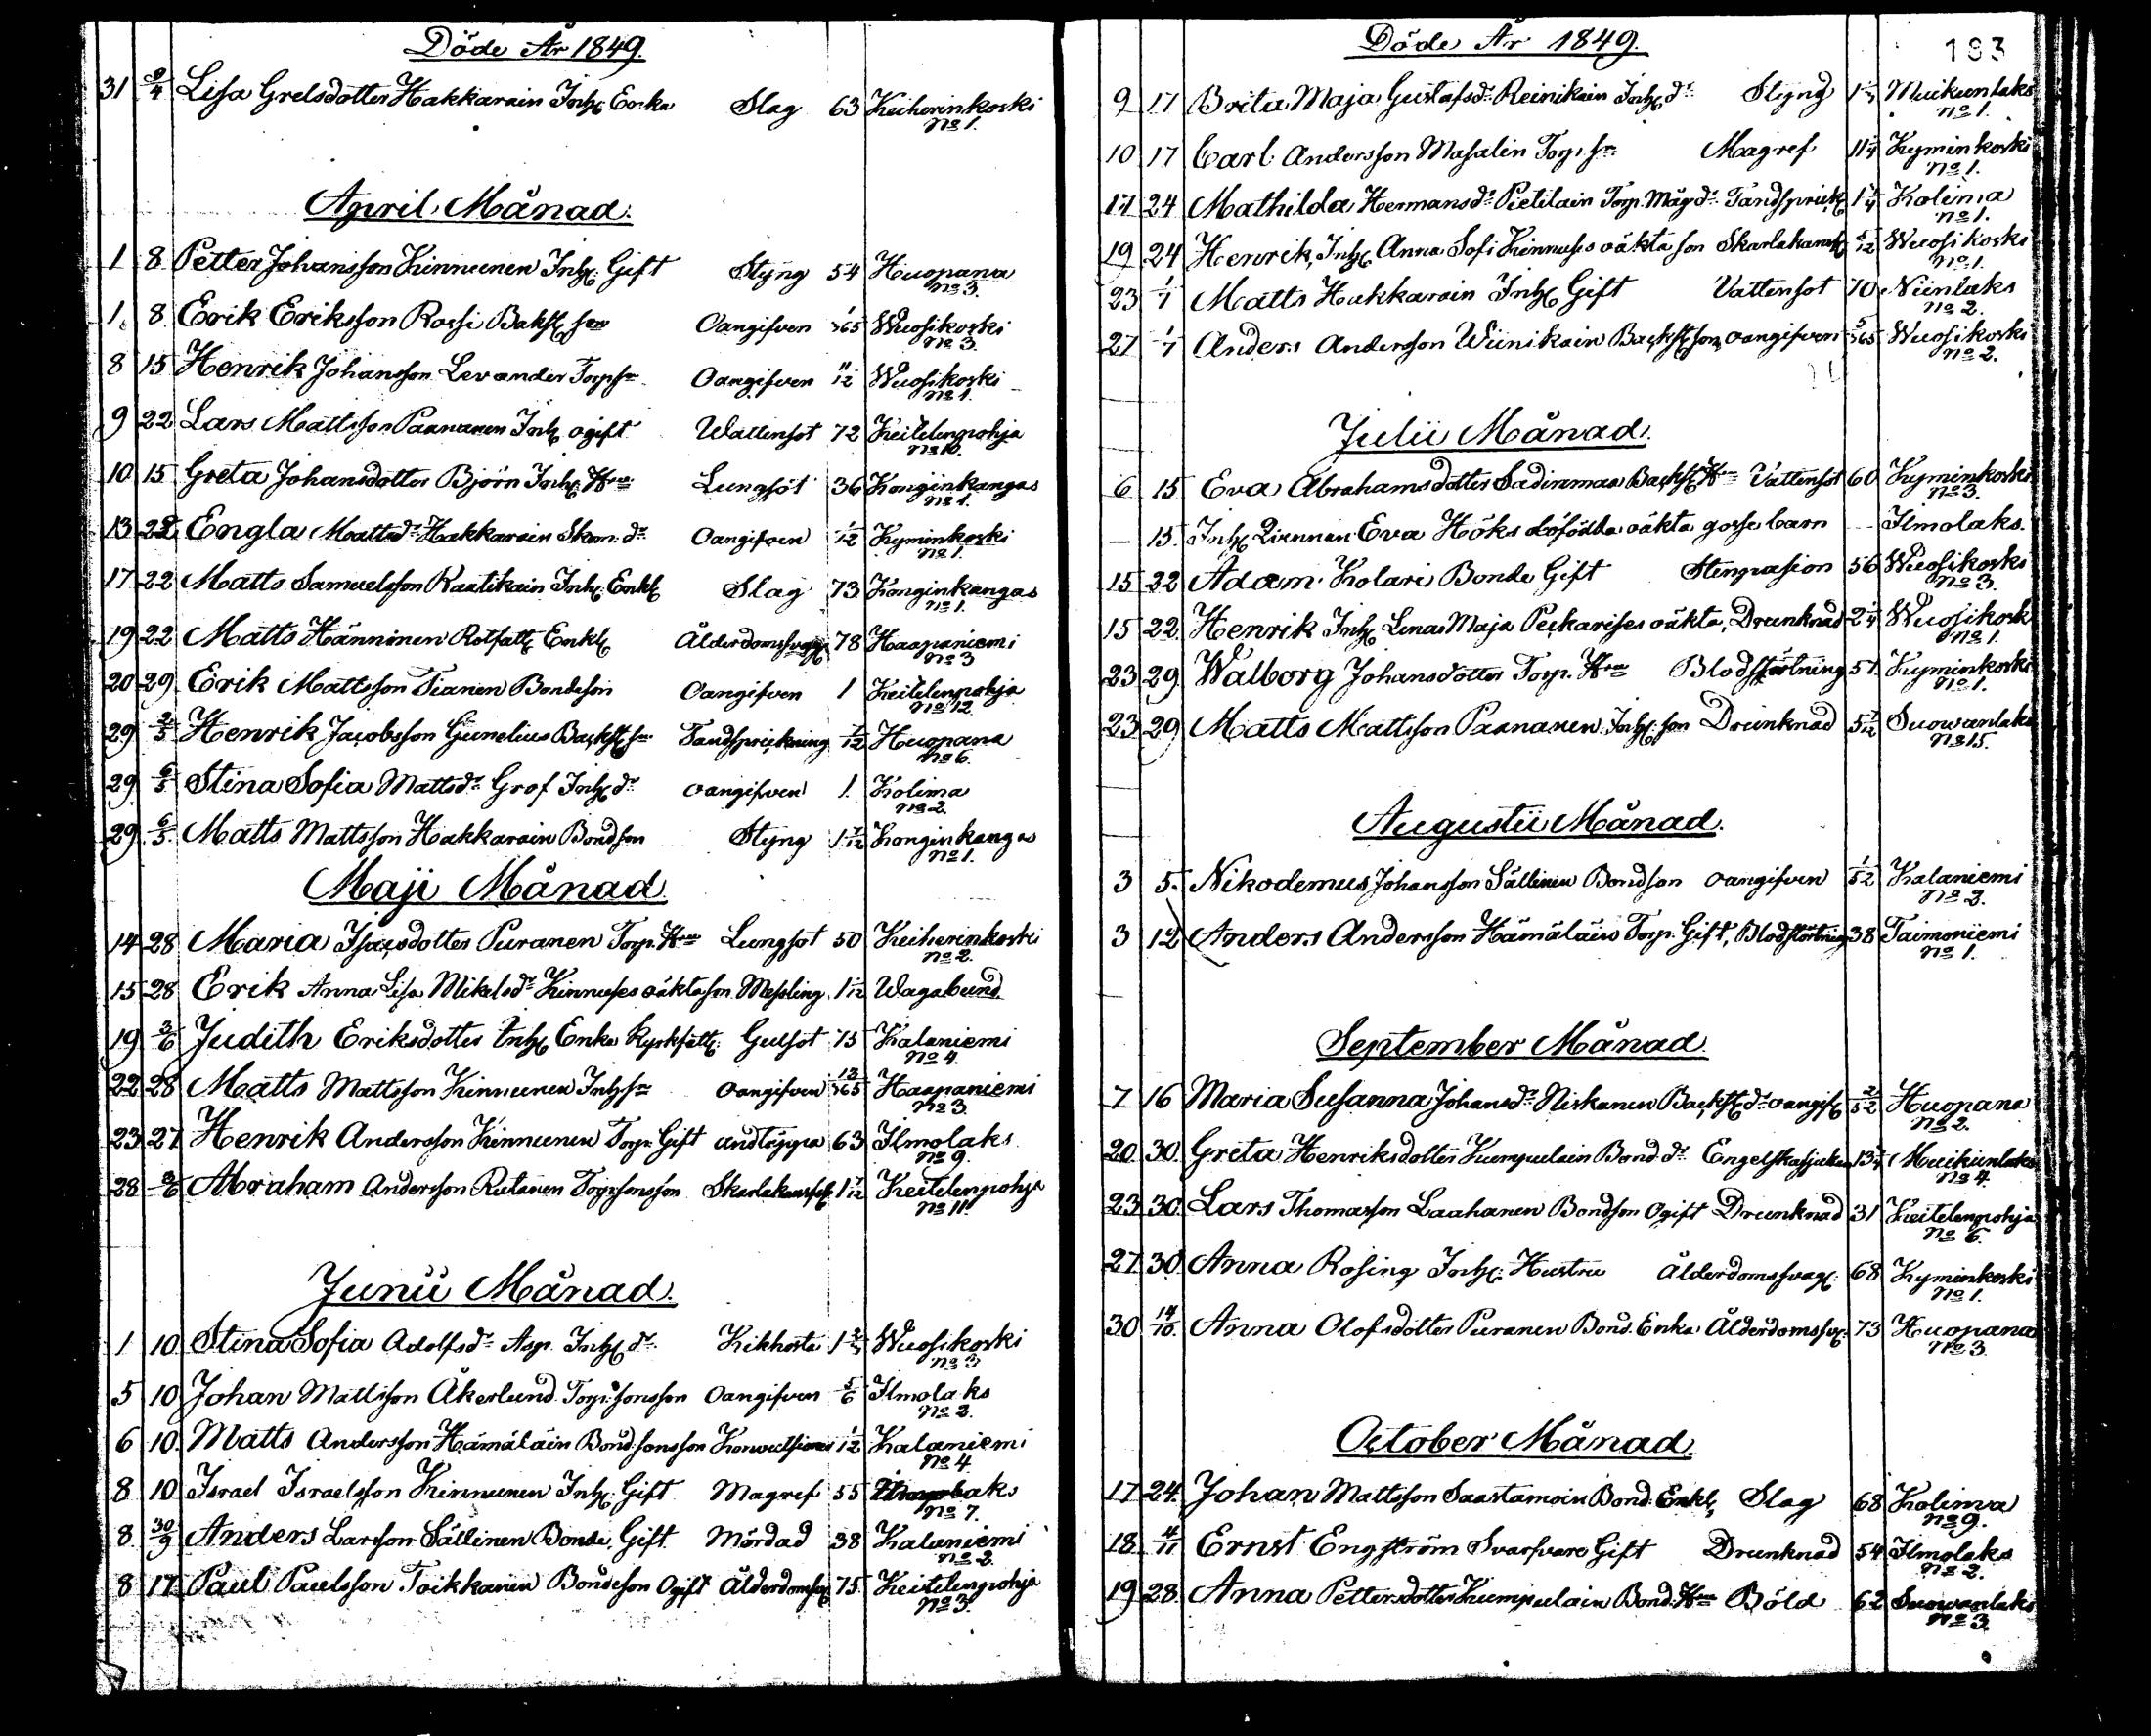 Döde År 1849.
31 9/4 Lisa Grelsdotter Hakkarain Inh: Enka Slag 63 Keiherinkoski
No 1.
April Månad.
1 8 Petter Johansson Kinnunen Inh: Gift Styng 54 Huopana
No 3.
1 8 Erik Eriksson Rossi Bakst: son Oangifven 1/365 Wuosikoski
No 3.
8 15 Henrik Johansson Levander Torp: sn Oangifven 11/12 Wuosikoski
No 1.
9 22 Lars Mattsson Paananen Inh: ogift Wattensot 72 Keitelenpohja
No 10.
10 15 Greta Johansdotter Björn Inh: Hru Lungsot 36 Konginkangas
No 1.
13 22 Engla Mattsdr Hakkarain Skom: dr Oangifven 1/12 Kyminkoski
No 1.
17 22 Matts Samuelsson Raatikain Inh: Enkl: Slag 73 Konginkangas
No 1.
19 22 Matts Hänninen Rotfatt: Enkl: Ålderdomssvag: 78 Haapaniemi
No 3
20 29 Erik Mattsson Tianen Bondeson Oangifven 1 Keitelenpohja
No 12.
29 2/5 Henrik Jacobsson Gunelius Backst: sn Tandsprickning 7/12 Huopana
No 6.
29 6/5 Stina Sofia Mattsdr Grof Inh: dr oangifven 1 Kolima
No 2.
29 6/5 Matts Mattsson Hakkarain Bondson Styng 1 7/12 Konginkangas
No 1.
Maji Månad.
14 28 Maria Isacsdotter Puranen Torp. Hru Lungsot 50 Keiherinkoski
No 2.
15 28 Erik Anna Lisa Mikelsdr Kinnuses oäkta son Messling 1 1/12 Wagabund
19 3/6 Judith Eriksdotter Inh: Enka Kyrkfatt: Gulsot 75 Kalaniemi
No 4.
22 28 Matts Mattsson Kinnunen Inh: sn oangifven 13/365 Haapaniemi
No 3.
23 27 Henrik Andersson Kinnunen Torp: Gift andtäppa 63 Ilmolaks
No 9.
28 3/6 Abraham Andersson Rutanen Torp: sonson Skarlakansfeb: 1 7/12 Keitelenpohja
No 11.
Junii Månad.
1 10 Stina Sofia Adolfsdr Asp. Inh: dr Kikhosta 1 2/3 Wuosikoski
No 3
5 10 Johan Mattsson Åkerlund Torp: sonsson Oangifven 5/6 Ilmolaks
No 2.
6 10 Matts Andersson Hämäläin Bond: sonsson Konvulsioner 1/12 Kalaniemi
No 4
8 10 Israel Israelsson Kinnunen Inh: Gift Magref 55
No 7.
8 30/9 Anders Larsson Sällinen Bonde, Gift Mördad 38 Kalaniemi
No 2.
8 17 Paul Paulsson Toikkanen Bondeson Ogift Ålderdomssv: 75 Keitelenpohja
No 3.
Döde År 1849.
193
9 17 Brita Maja Gustafsdr Reinikain Inh: dr Styng Muikunlaks
No 1.
10 17 Carl Andersson Masalin Torp: sn Magref 11 Kyminkoski
No 1.
17 24 Mathilda Hermansdr Pietilain Torp. Mågdr Tandsprick: 1 1/4 Kolima
No 1.
19 24 Henrik, Inh: Anna Sofi Kinnuses oäkta son Skarlakansf: 5/12 Wuosikoski
No 1.
23 1/7 Matts Hakkarain Inh: Gift Vattensot 70 Niinlaks
No 2.
27 1/7 Anders Andersson Wiinikain Backst: son, oangifven 5/365 Wuosikoski
No 2.
Julii Månad.
6 15 Eva Abrahamsdotter Sadinmaa Backst: Hru Vattensot 60 Kyminkoski
No 3.
— 15. Inh: Qvinnan Eva Höks dödfödda oäkta gosse barn — Ilmolaks.
15 22 Adam Kolari Bonde Gift Stenpasion 56 Wuosikoski
No 3.
15 22 Henrik Inh: Lenas Maja Peckarises oäkta, Drunknad 2 1/4 Wuosikosk
No 1.
23 29 Walborg Johansdotter Torp. Hru Blodstörtning 51 Kyminkoski
No 1.
23 29 Matts Mattsson Paananen Inh: son Drunknad 5 7/12 Suowanlaks
No 15.
Augustii Månad.
3 5. Nikodemus Johansson Sällinen Bondson oangifven 1/52 Kalaniemi
No 2.
3 12 Anders Andersson Hämäläin Torp. Gift, Blodstörtning 38 Taimoniemi
No 1.
September Månad.
7 16 Maria Susanna Johansdr Niskanen Backst: dr oangif: 2/52 Huopana
No 2.
20 30. Greta Henriksdotter Kumpulain Bond. dr Engelska sjukan 13 1/4 Muikunlaks
No 4.
23 30. Lars Thomasson Laahanen Bondson Ogift Drunknad 31 Keitelenpohja
No 6.
27 30 Anna Rosing Inh: Hustru ålderdomssvag: 68 Kyminkoski
No 1.
30 14/10. Anna Olofsdotter Puranen Bond. Enka Ålderdomssv: 73 Huopana
No 3.
October Månad.
17 24. Johan Mattsson Saastamoin Bond. Enkl: Slag 68 Kolima
No 9.
18 4/11 Ernst Engström Svarfvare Gift Drunknad 54 Ilmolaks
No 2.
19 28. Anna Pettersdotter Kumpulain Bond: Hru Böld 62 Suowanlaks
No 3.